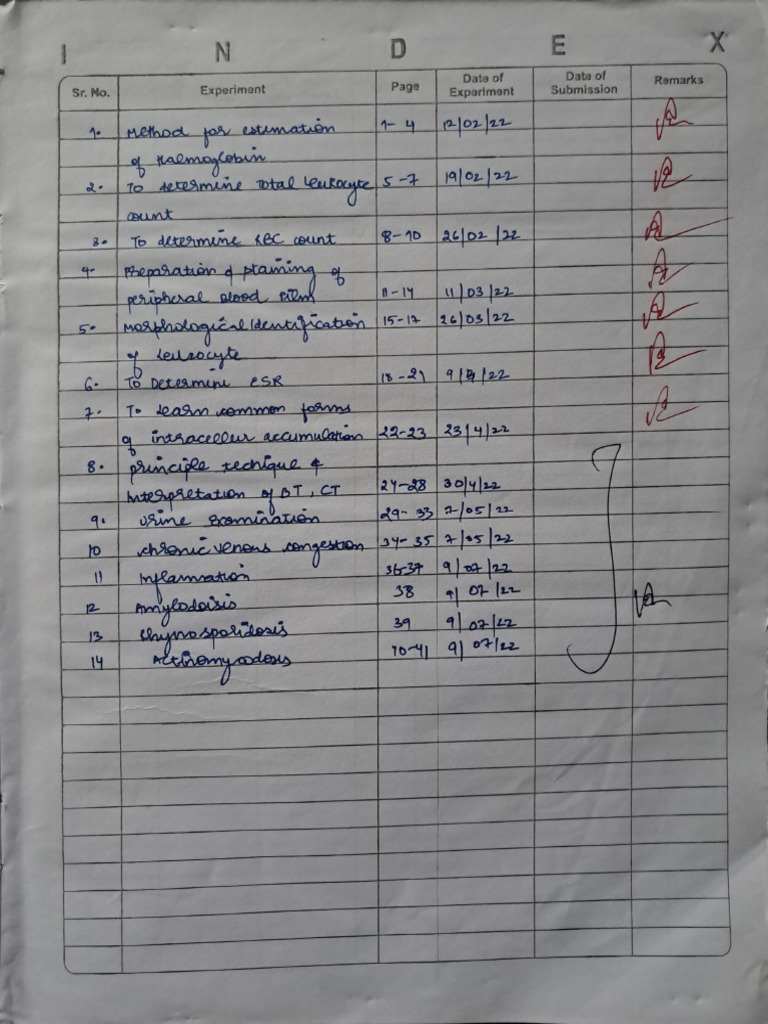 I N D E X
Sr. No. Experiment Page Date of Experiment Date of Submission Remarks
1. Method for estimation 1-4 12/02/22
of Haemoglobin
2. To determine Total Leukocyte 5-7 19/02/22
count
3. To determine RBC count 8-10 26/02/22
4. Preparation & staining of
peripheral blood film 11-14 11/03/22
5. Morphological Identification 15-17 26/03/22
of Leukocyte
6. To Determine ESR 18-21 9/4/22
7. To Learn common forms
of intracellur accumulation 22-23 23/4/22
8. principle techique &
Interpretation of BT, CT 24-28 30/4/22
9. Urine Examination 29-33 7/05/22
10 chronic venous congestion 34-35 7/05/22
11 Inflammation 36-37 9/07/22
12 Amylodoisis 38 9/07/22
13 Rhynosporidosis 39 9/07/22
14 Actinomycodosis 40-41 9/07/22